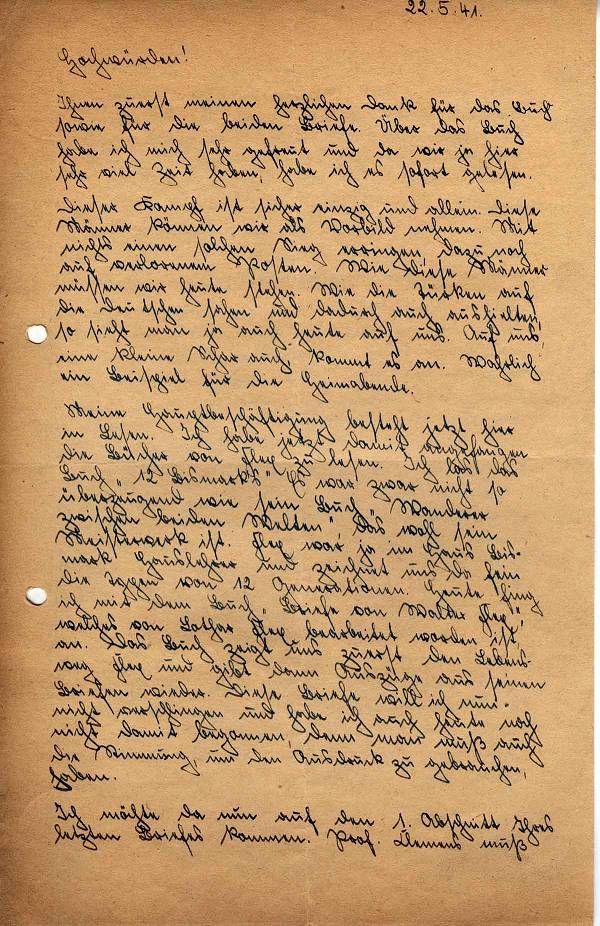 22.5.41.
Hochwürden!
Ihnen zuerst meinen herzlichen Dank für das Buch
sowie für die beiden Briefe. Über das Buch
habe ich mich sehr gefreut und da wir ja hier
sehr viel Zeit haben, habe ich es sofort gelesen.
Dieser Kampf ist sicher einzig und allein. Diese
Männer können wir als Vorbild nehmen. Mit
nichts einen solchen Sieg erringen, dazu noch
auf verlorenem Posten. Wie diese Männer
müssen wir heute stehen. Wie die Türken auf
die Deutschen sahen und dadurch auch aushielten,
so sieht man ja auch heute auf uns. Auf uns,
eine kleine Schar auch kommt es an. Wahrlich
ein Beispiel für die Heimabende.
Meine Hauptbeschäftigung besteht jetzt hier
in Lesen. Ich habe jetzt damit angefangen
die Bücher von Flex zu lesen. Ich las das
Buch „12 Bismarks" Es war zwar nicht so
überzeugend wie sein Buch „Wanderer
zwischen beiden Welten", das wohl sein
Meisterwerk ist. Flex war ja im Haus Bis-
mark Hauslehrer und zeichnet uns da fein
die Typen von 12 Generationen. Heute fing
ich mit dem Buch „Briefe von Walter Flex",
welches von Lothar Flex bearbeitet worden ist,
an. Das Buch zeigt uns zuerst den Lebens-
weg Flex und gibt dann Auszüge aus seinen
Briefen wieder. Diese Briefe will ich nun
nicht verschlingen und habe ich auch heute noch
nicht damit begonnen, denn man muß auch
die Stimmung, um den Ausdruck zu gebrauchen,
haben.
Ich möchte da nun auf den 1. Abschnitt Ihres
letzten Briefes kommen. Prof. Clemens muß